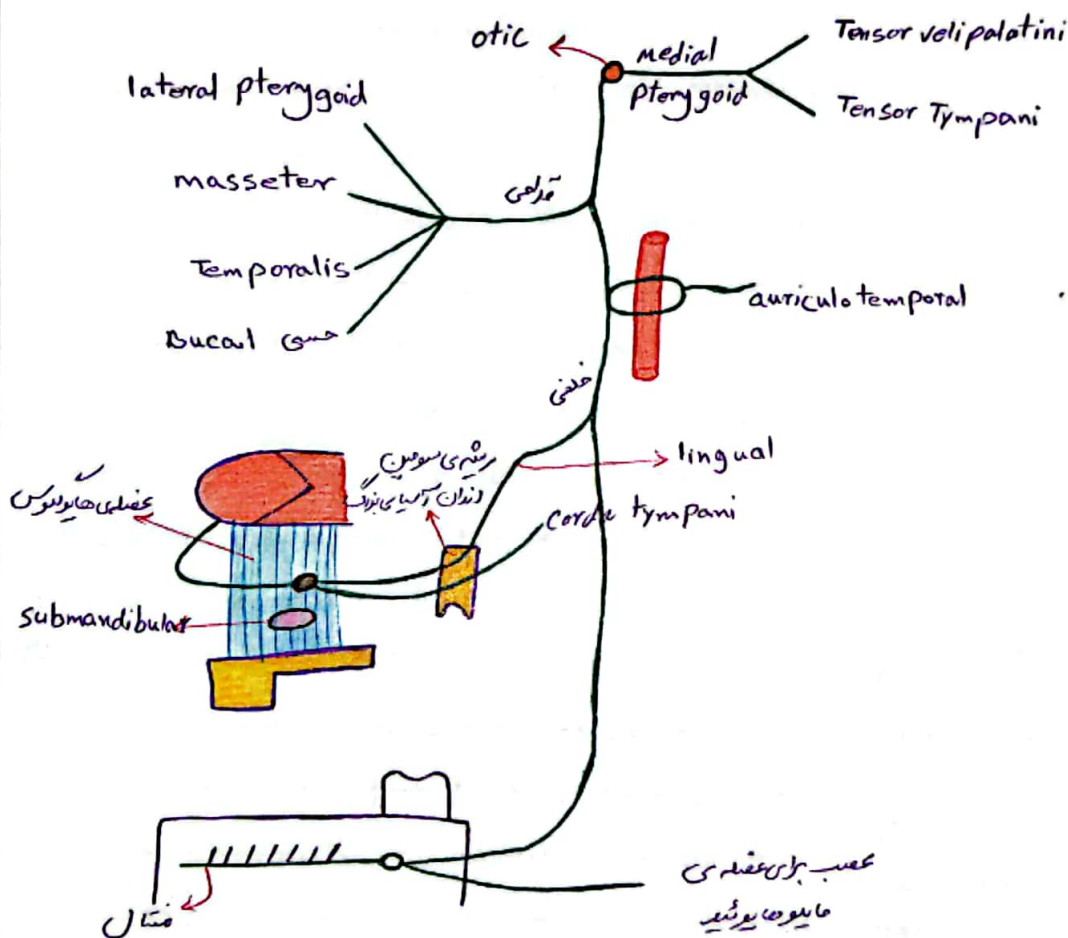 otic
medial
pterygoid
Tensor veli palatini
Tensor Tympani
lateral pterygoid
masseter
Temporalis
Bucal حسی
قدامی
auriculo temporal
خلفی
lingual
corda tympani
ریشه‌ی سومین
دندان آسیای بزرگ
عضله‌ی هایوگلوس
submandibular
عصب برای عضله‌ی
مایلوهایوئید
منتال